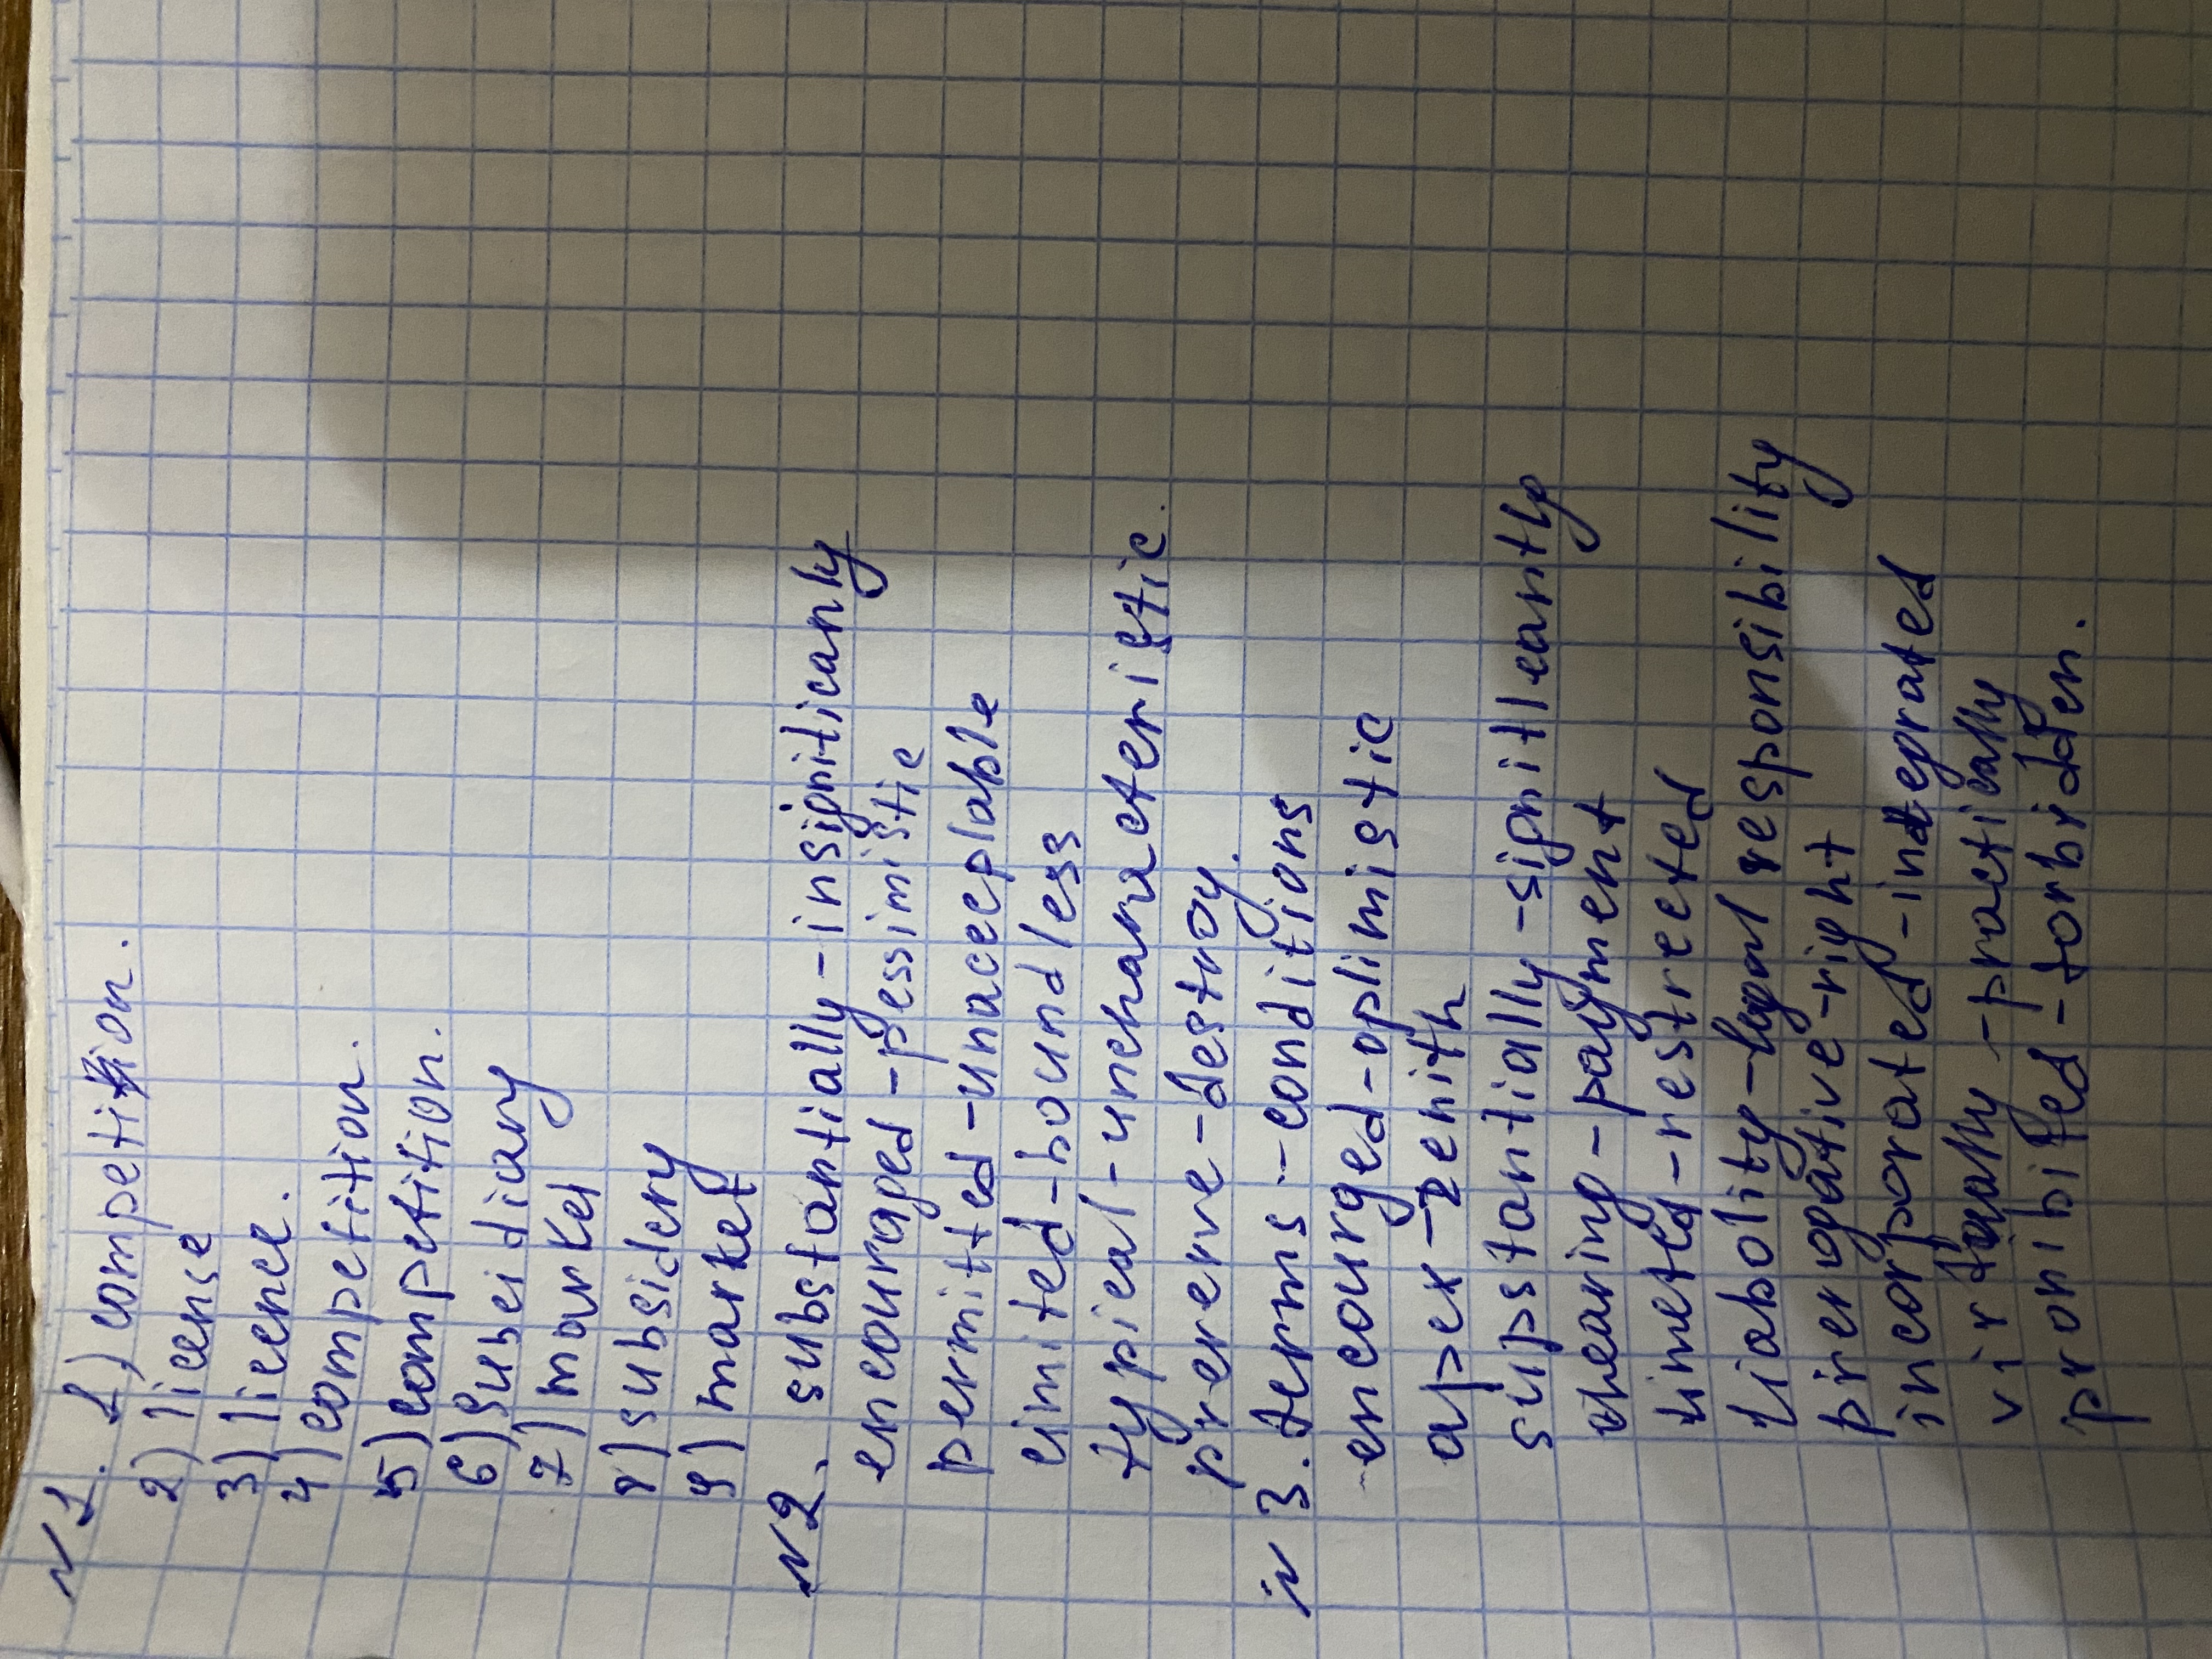 N1. 1) competition.
2) license
3) licence.
4) competition.
5) competition.
6) subcidiary
7) market
8) subsidery
9) market
N2. substantially - insignificanly
encouraged - pessimistic
permitted - unacceplable
limited - boundless
typical - uncharacteristic.
prererve - destroy.
N3. terms - conditions
encourged - oplimistic
apex - zenith
supstantially - signitleantly
shearing - payment
limeted - restreeted
liabolity - legal responsibility
prerogative - right
incorporated - integrated
virtually - practically
pronibited - forbridden.